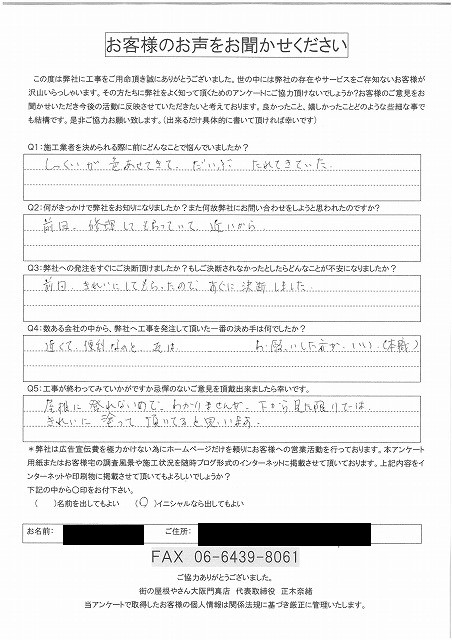 お客様のお声をお聞かせください
この度は弊社に工事をご用命頂き誠にありがとうございました。世の中には弊社の存在やサービスをご存知ないお客様が
沢山いらっしゃいます。その方たちに弊社をよく知って頂くためのアンケートにご協力頂けないでしょうか?お客様のご意見をお
聞かせいただき今後の活動に反映させていただきたいと考えております。良かったこと、嬉しかったことどのような些細な事で
も結構です。是非ご協力お願い致します。(出来るだけ具体的に書いて頂ければ幸いです)
Q1:施工業者を決められる際に前にどんなことで悩んでいましたか?
しっくいが 色あせてきて、だいぶ たれてきていた
Q2:何がきっかけで弊社をお知りになりましたか?また何故弊社にお問い合わせをしようと思われたのですか?
前回、修理してもらっていて 近いから
Q3:弊社への発注をすぐにご決断頂けましたか?もしご決断されなかったとしたらどんなことが不安になりましたか?
前回 きれいにしてもらったので、すぐに決断しました。
Q4:数ある会社の中から、弊社へ工事を発注して頂いた一番の決め手は何でしたか?
近くて、便利なのと お願いした方が、いい。(本職)
Q5:工事が終わってみていかがですか忌憚のないご意見を頂戴出来ましたら幸いです。
屋根に登れないので、わかりませんが、下から見た限りでは、
きれいに塗って頂いてると思います。
*弊社は広告宣伝費を極力かけない為にホームページだけを頼りにお客様への営業活動を行っております。本アンケート
用紙またはお客様宅の調査風景や施工状況を随時ブログ形式のインターネットに掲載させて頂いております。上記内容をイ
ンターネットや印刷物に掲載させて頂いてもよろしいでしょうか?
下記の中から〇印をお付下さい。
( )名前を出してもよい (〇)イニシャルなら出してもよい
お名前: ご住所:
FAX 06-6439-8061
ご協力ありがとうございました。
街の屋根やさん大阪門真店 代表取締役 正木奈緒
当アンケートで取得したお客様の個人情報は関係法規に基づき厳正に管理いたします。